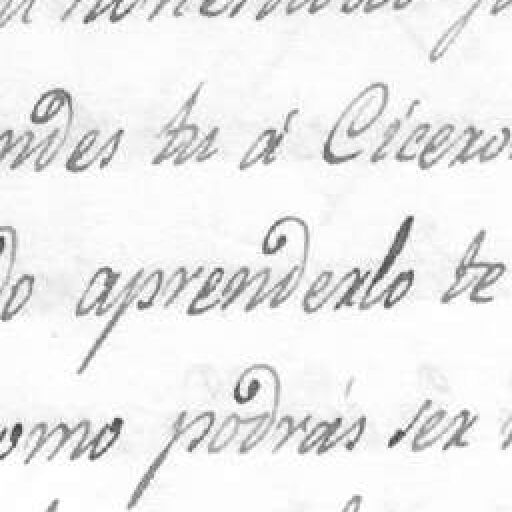 ndes tu á Cicero
do aprenderlo te
omo podrás ser